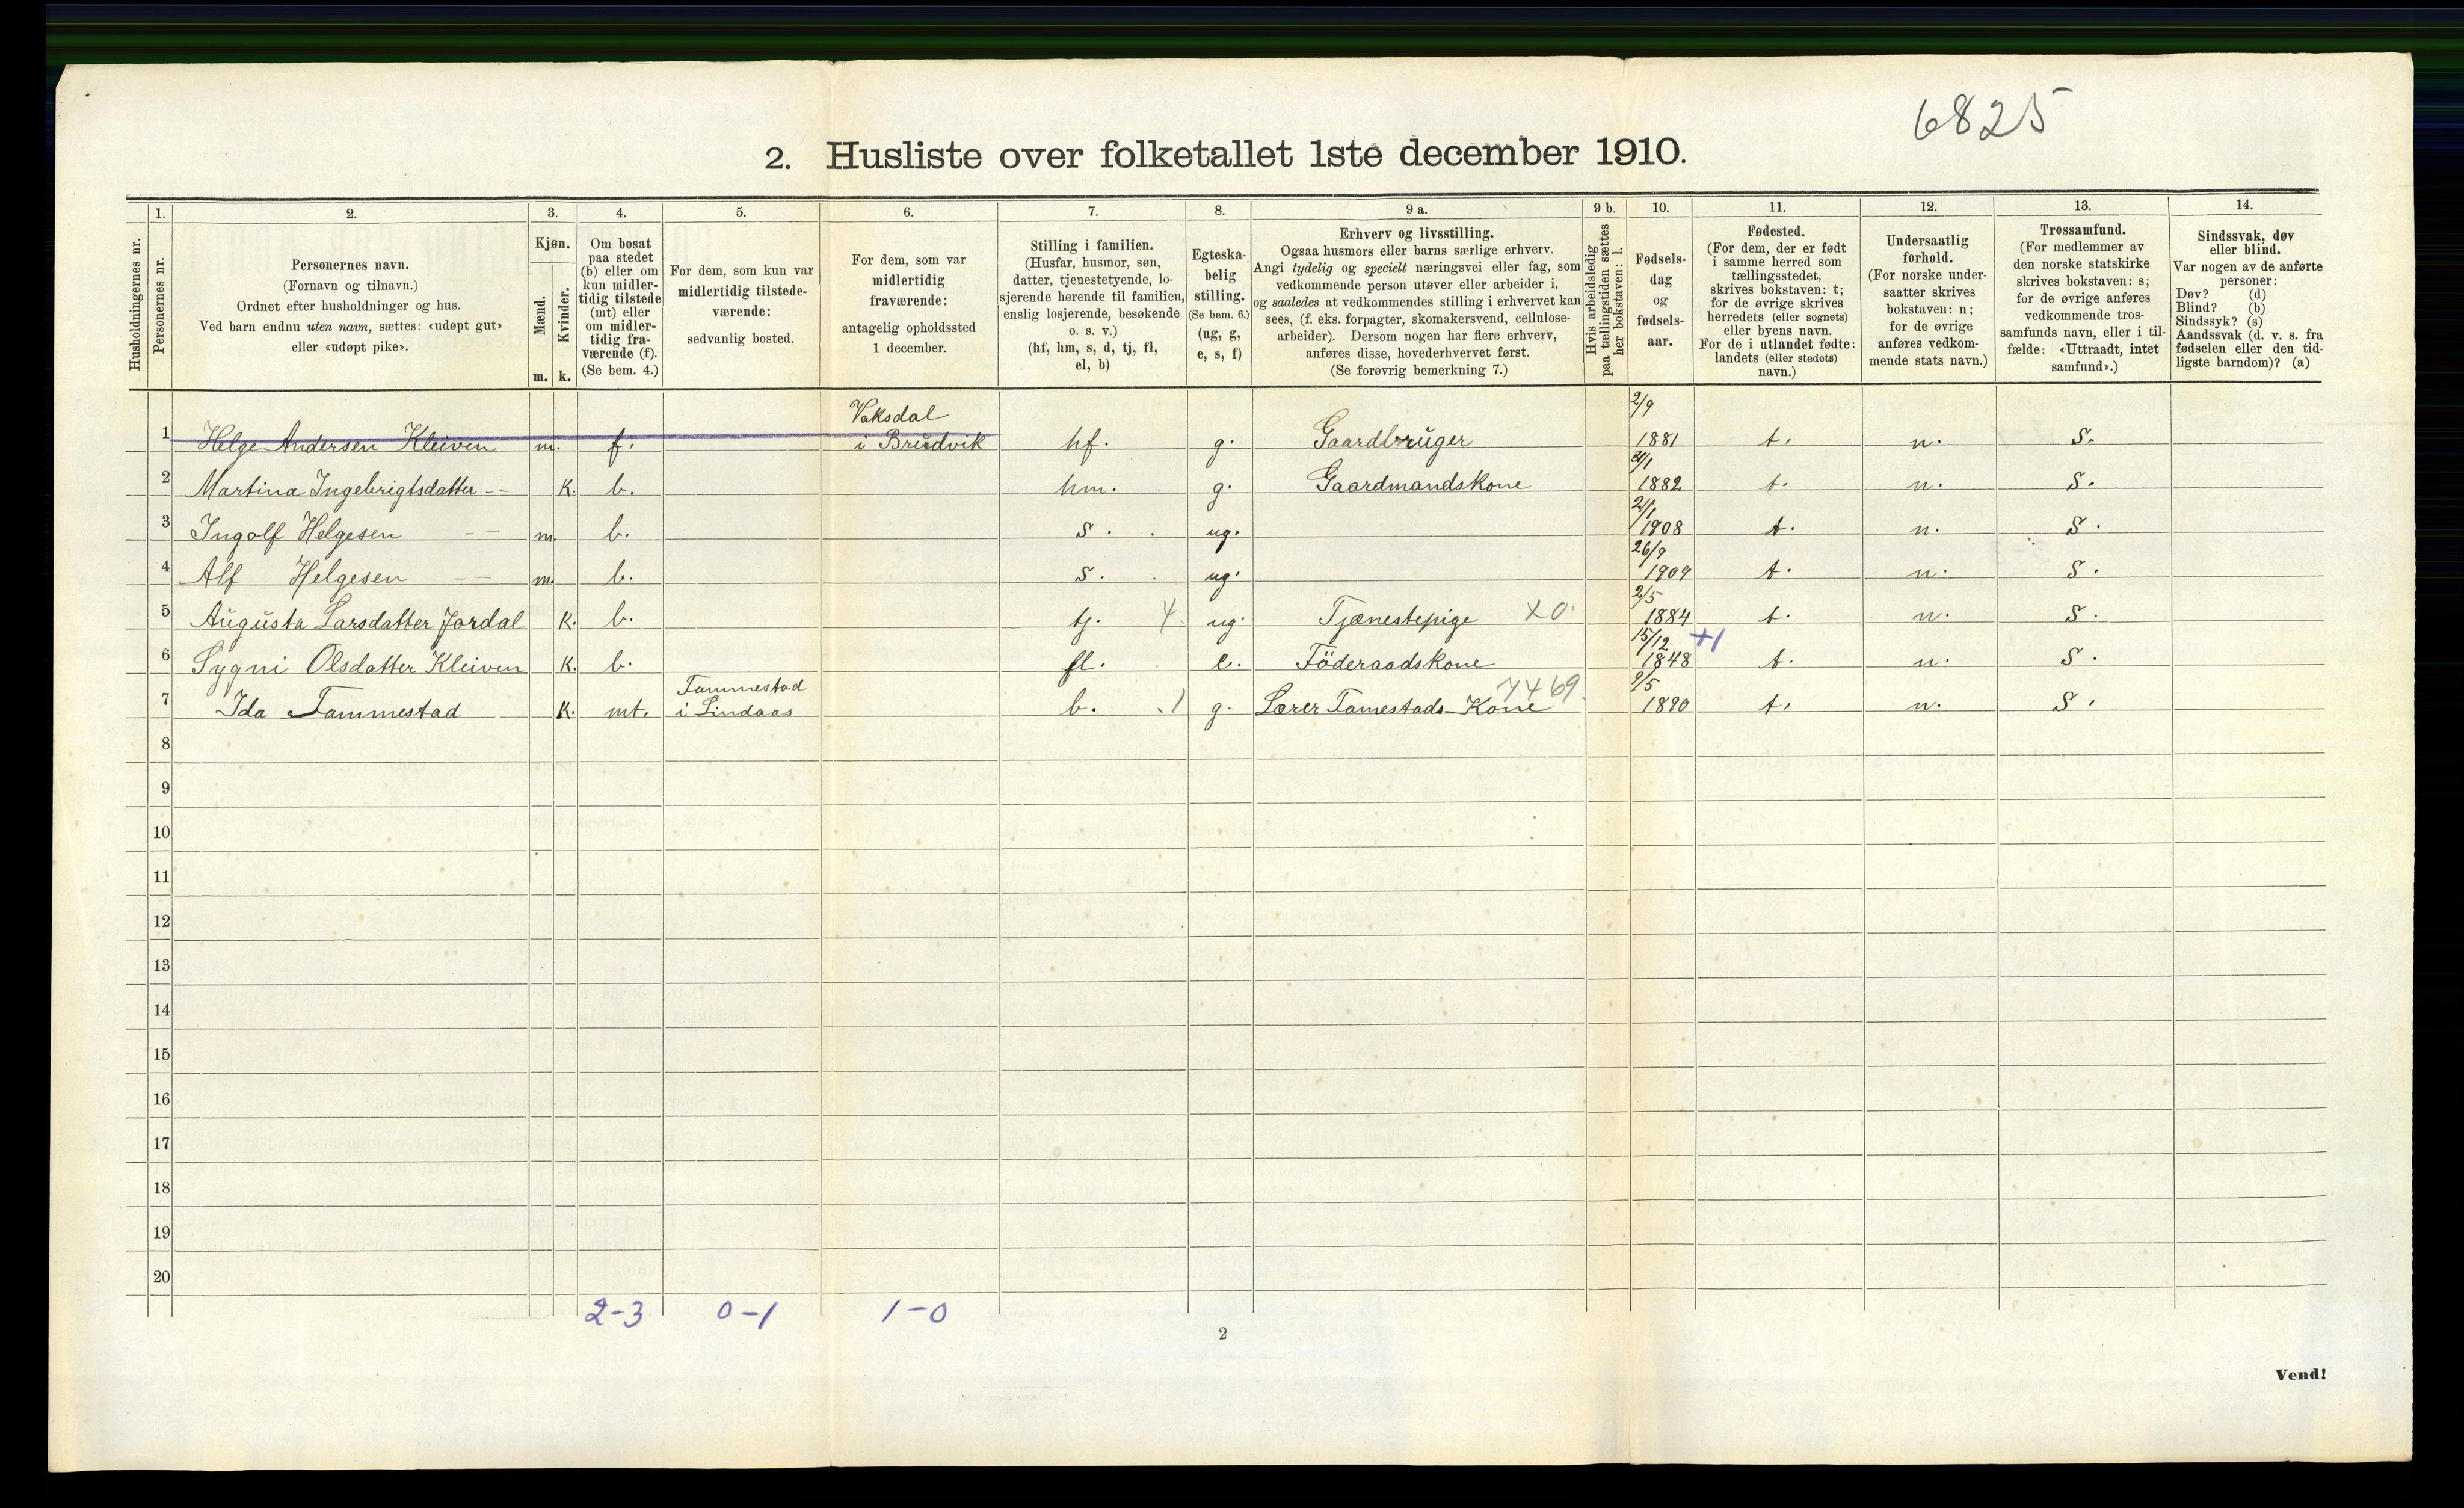 6825
2. Husliste over folketallet 1ste december 1910.
Husholdningernes nr.
1.
Personernes nr.
2.
Personernes navn.
(Fornavn og tilnavn.)
Ordnet efter husholdninger og hus.
Ved barn endnu uten navn, sættes: «udøpt gut»
eller «udøpt pike».
3.
Kjøn.
Mænd.
Kvinder.
m. k.
4.
Om bosat
paa stedet
(b) eller om
kun midler-
tidig tilstede
(mt) eller
om midler-
tidig fra-
værende (f).
(Se bem. 4.)
5.
For dem, som kun var
midlertidig tilstede-
værende:
sedvanlig bosted.
6.
For dem, som var
midlertidig
fraværende:
antagelig opholdssted
1 december.
7.
Stilling i familien.
(Husfar, husmor, søn,
datter, tjenestetyende, lo-
sjerende hørende til familien,
enslig losjerende, besøkende
o. s. v.)
(hf, hm, s, d, tj, fl,
el, b)
8.
Egteska-
belig
stilling.
(Se bem. 6.)
(ug, g,
e, s, f)
9 a.
Erhverv og livsstilling.
Ogsaa husmors eller barns særlige erhverv.
Angi tydelig og specielt næringsvei eller fag, som
vedkommende person utøver eller arbeider i,
og saaledes at vedkommendes stilling i erhvervet kan
sees, (f. eks. forpagter, skomakersvend, cellulose-
arbeider). Dersom nogen har flere erhverv,
anføres disse, hovederhvervet først.
(Se forøvrig bemerkning 7.)
9 b.
Hvis arbeidsledig
paa tællingstiden sættes
her bokstaven: l.
10.
Fødsels-
dag
og
fødsels-
aar.
11.
Fødested.
(For dem, der er født
i samme herred som
tællingsstedet,
skrives bokstaven: t;
for de øvrige skrives
herredets (eller sognets)
eller byens navn.
For de i utlandet fødte:
landets (eller stedets)
navn.)
12.
Undersaatlig
forhold.
(For norske under-
saatter skrives
bokstaven: n;
for de øvrige
anføres vedkom-
mende stats navn.)
13.
Trossamfund.
(For medlemmer av
den norske statskirke
skrives bokstaven: s;
for de øvrige anføres
vedkommende tros-
samfunds navn, eller i til-
fælde: «Uttraadt, intet
samfund».)
14.
Sindssvak, døv
eller blind.
Var nogen av de anførte
personer:
Døv? (d)
Blind? (b)
Sindssyk? (s)
Aandssvak (d. v. s. fra
fødselen eller den tid-
ligste barndom)? (a)
1 Helge Andersen Kleiven m. f. Vaksdal i Brudvik hf. g. Gaardbruger 2/9 1881 t. n. S.
2 Martina Ingebrigtsdatter -- K. b. hm. g. Gaardmandskone 1882 t. n. S.
3 Ingolf Helgesen -- m. b. s. ug. 2/1 1908 t. n. S.
4 Alf Helgesen -- m. b. s. ug. 26/9 1909 t. n. S.
5 Augusta Larsdatter Jordal K. b. tj. 4 ug. Tjænestepige XO 2/5 1884 t. n. S.
6 Sygni Olsdatter Kleiven K. b. fl. e. Föderaadskone 15/12 1848 +1 t. n. S.
7 Ida Fammestad K. mt. Fammestad i Lindaas b. 1 g. Lærer Famestads-Kone 7469 9/5 1890 t. n. S.
8
9
10
11
12
13
14
15
16
17
18
19
20
2-3 0-1 1-0
2
Vend!